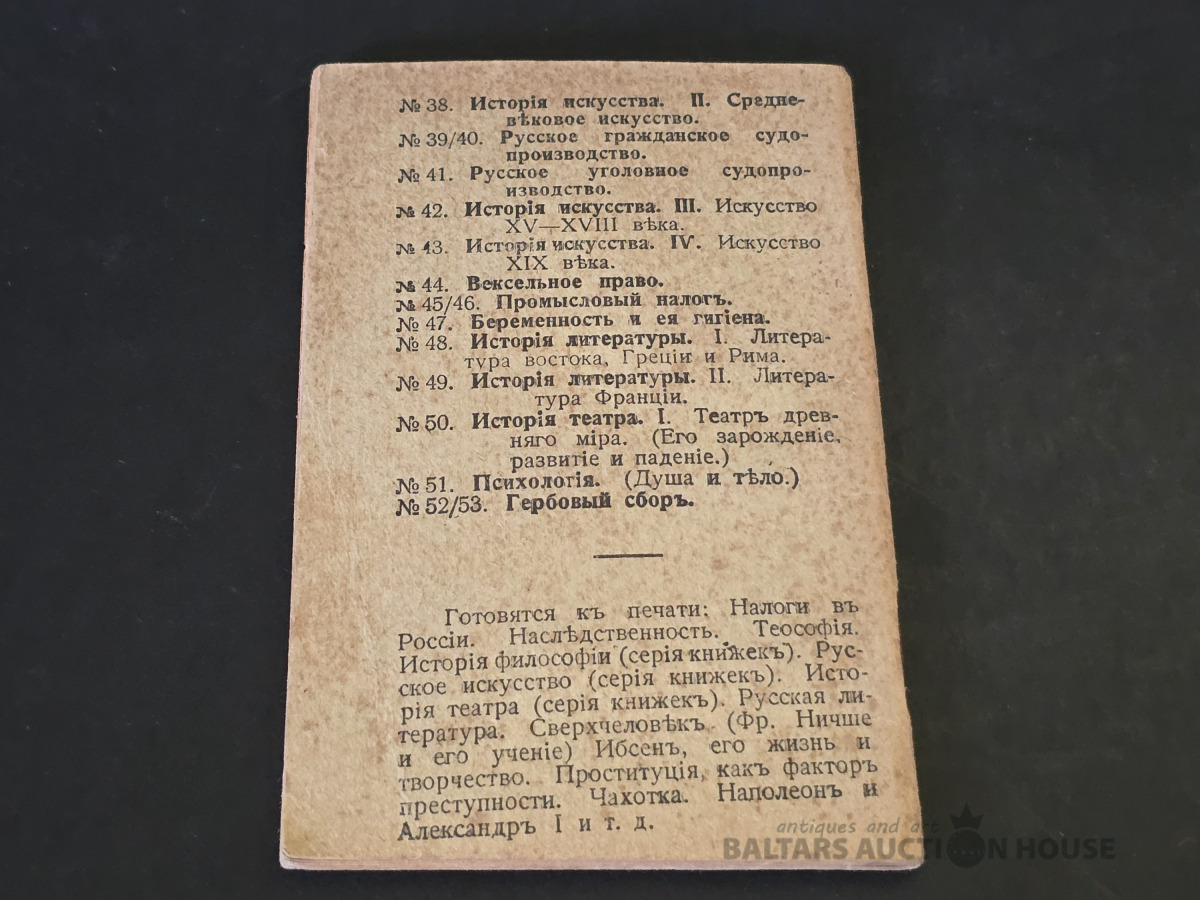 № 38. Исторія искусства. II. Средне-
вѣковое искусство.
№ 39/40. Русское гражданское судо-
производство.
№ 41. Русское уголовное судопро-
изводство.
№ 42. Исторія искусства. III. Искусство
XV—XVIII вѣка.
№ 43. Исторія искусства. IV. Искусство
XIX вѣка.
№ 44. Вексельное право.
№ 45/46. Промысловый налогъ.
№ 47. Беременность и ея гигіена.
№ 48. Исторія литературы. I. Литера-
тура востока, Греціи и Рима.
№ 49. Исторія литературы. II. Литера-
тура Франціи.
№ 50. Исторія театра. I. Театръ древ-
няго міра. (Его зарожденіе,
развитіе и паденіе.)
№ 51. Психологія. (Душа и тѣло.)
№ 52/53. Гербовый сборъ.
Готовятся къ печати: Налоги въ
Россіи. Наслѣдственность. Теософія.
Исторія философіи (серія книжекъ). Рус-
ское искусство (серія книжекъ). Исто-
рія театра (серія книжекъ). Русская ли-
тература. Сверхчеловѣкъ (Фр. Ничше
и его ученіе) Ибсенъ, его жизнь и
творчество. Проституція, какъ факторъ
преступности. Чахотка. Наполеонъ и
Александръ I и т. д.
antiques and art
BALTARS AUCTION HOUSE